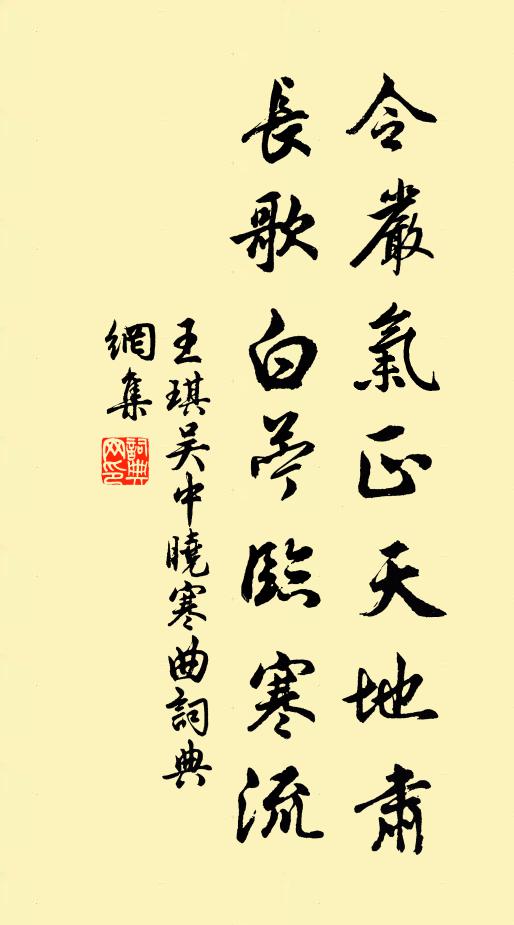 令嚴氣正天地肅
長歌白苧臨寒流
王琪吳中曉寒曲詞典
網集
詞典网印